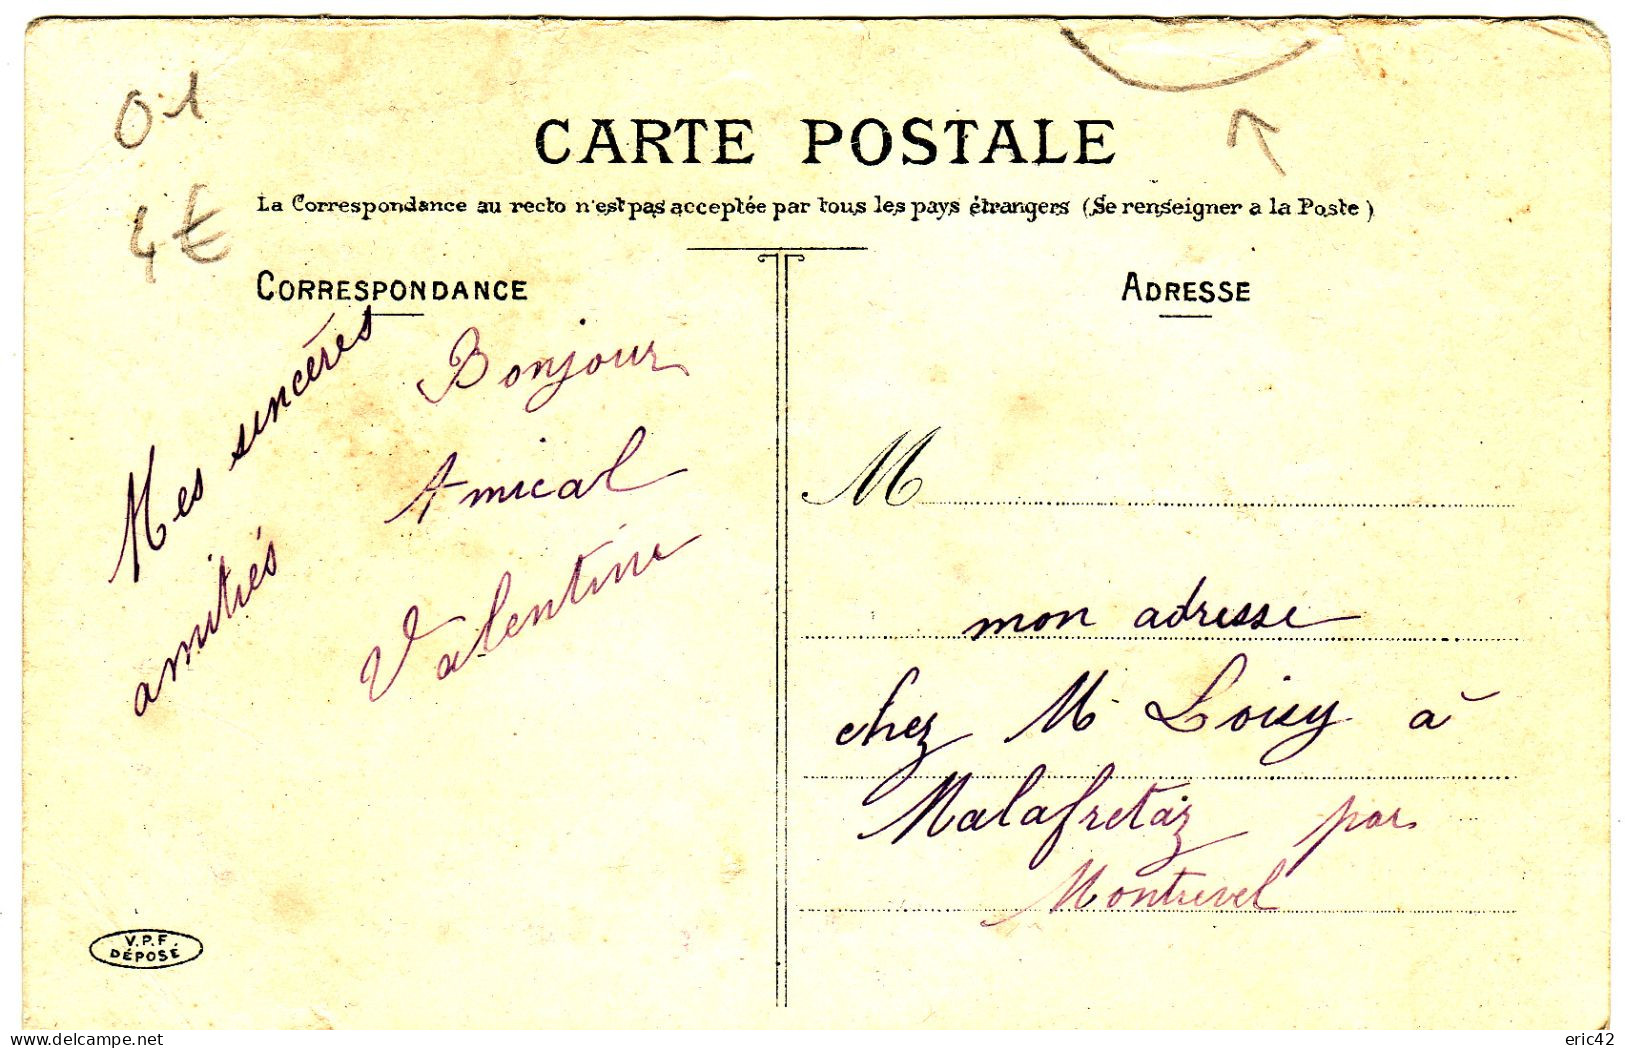 01
4€
CARTE POSTALE
La Correspondance au recto n'est pas acceptée par tous les pays étrangers (Se renseigner a la Poste)
CORRESPONDANCE
Mes sincères
amitiés
Bonjour
Amical
Valentine
V.P.F.
DÉPOSÉ
ADRESSE
M
mon adresse
chez M Loisy à
Malafretaz par
Montrevel
delcampe.net
eric42